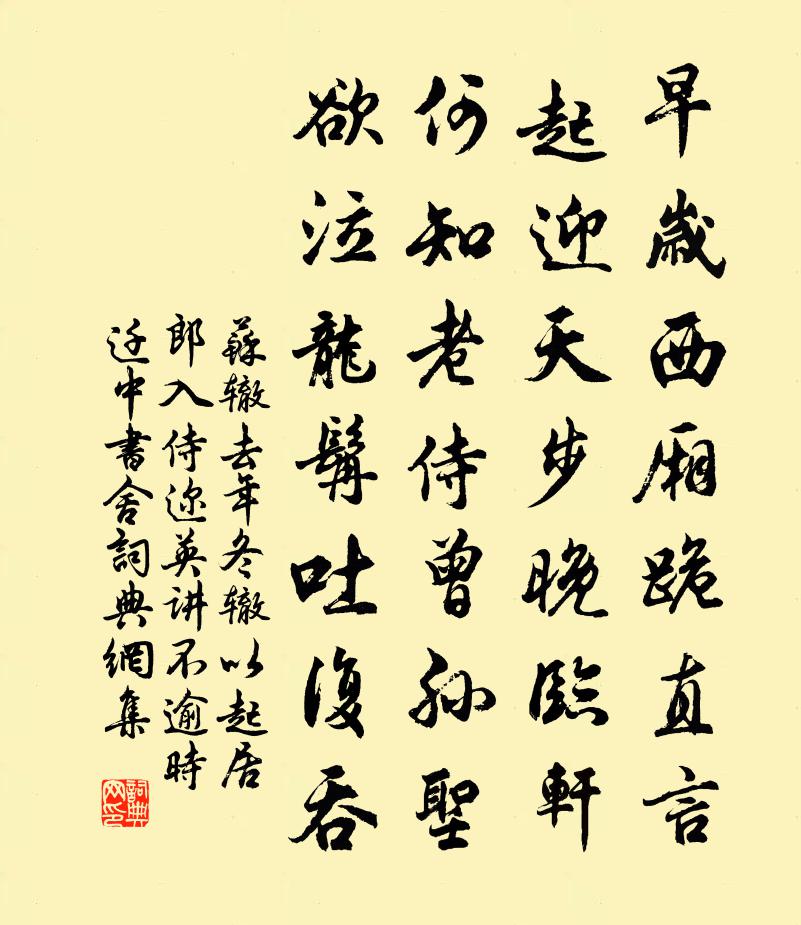 早歲西廂跪直言
起迎天步晚臨軒
何知老侍曾孫聖
欲泣龍髯吐復吞
蘇轍去年冬轍以起居
郎入侍迩英讲不逾時
迁中書舍詞典網集
詞典网印